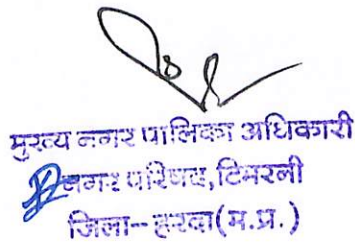 मुख्य नगर पालिका अधिकारी
नगर परिषद, टिमरनी
जिला-हरदा (म.प्र.)